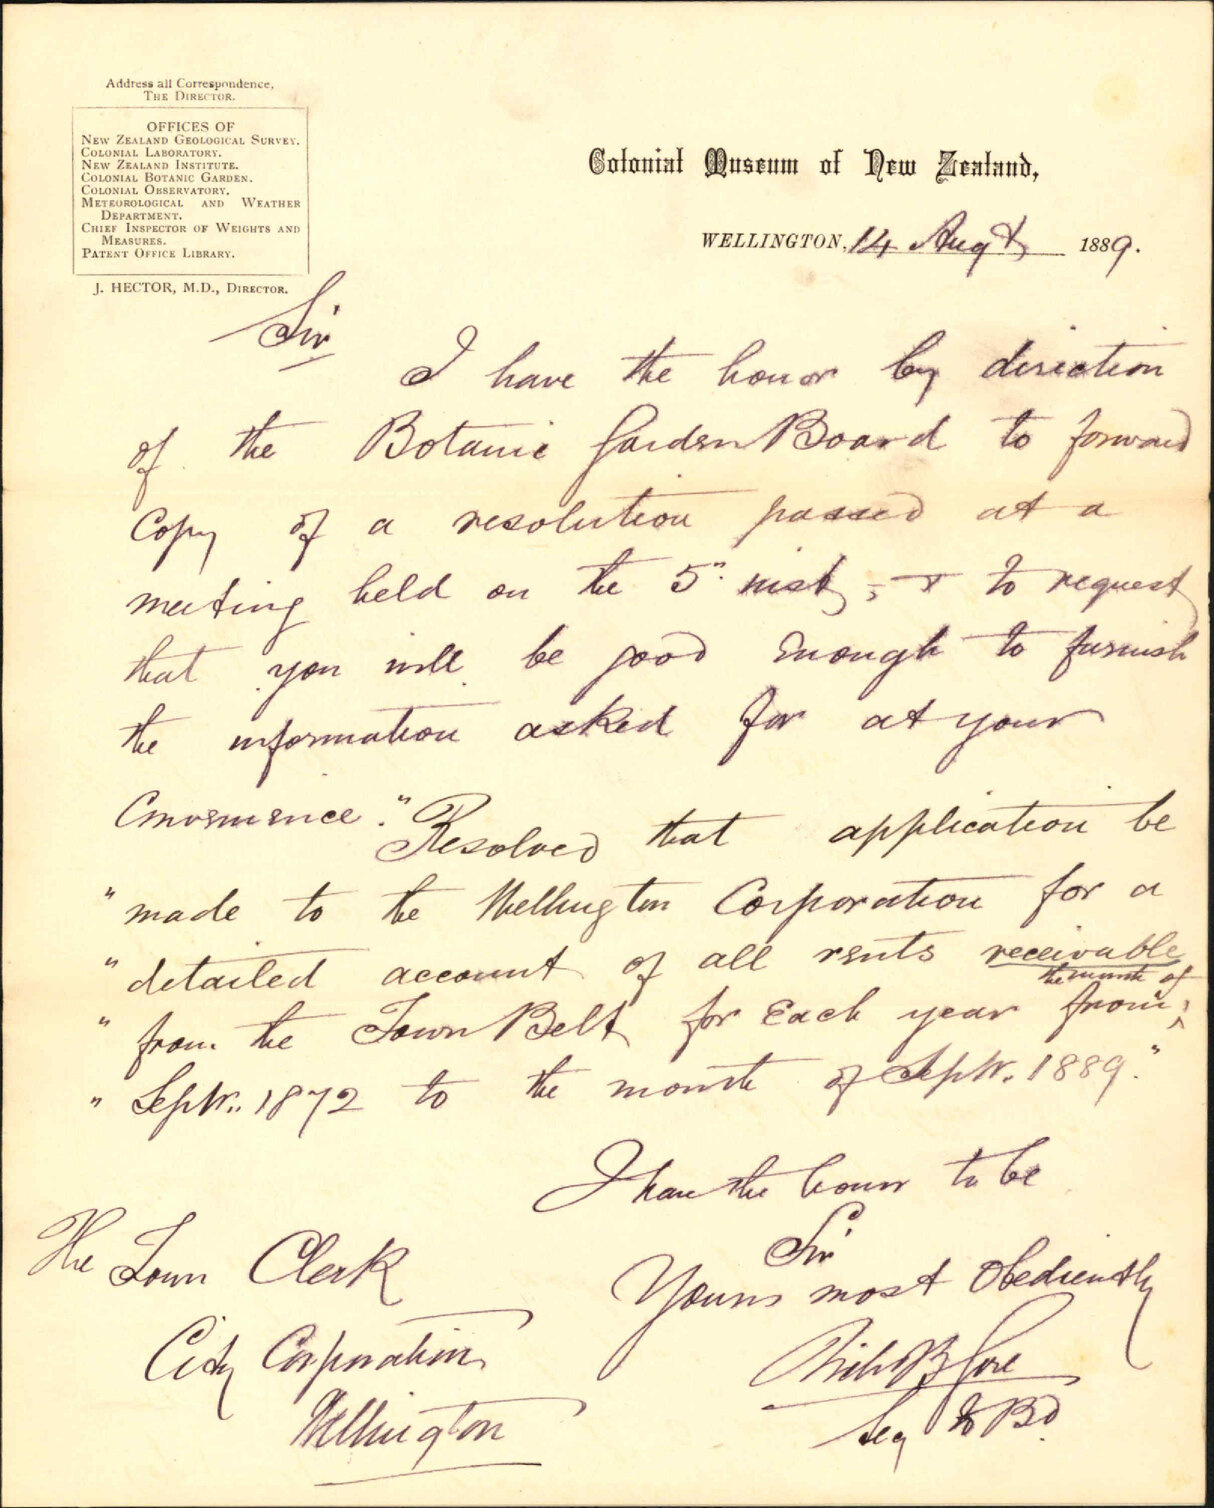 Address all Correspondence,
THE DIRECTOR.
OFFICES OF
NEW ZEALAND GEOLOGICAL SURVEY.
COLONIAL LABORATORY.
NEW ZEALAND INSTITUTE.
COLONIAL BOTANIC GARDEN.
COLONIAL OBSERVATORY.
METEOROLOGICAL AND WEATHER
DEPARTMENT.
CHIEF INSPECTOR OF WEIGHTS AND
MEASURES.
PATENT OFFICE LIBRARY.
J. HECTOR, M.D., DIRECTOR.
Colonial Museum of New Zealand,
WELLINGTON, 14 Augt 1889.
Sir
I have the honor by direction
of the Botanic Garden Board to forward
Copy of a resolution passed at a
meeting held on the 5" inst, & to request
that you will be good enough to furnish
the information asked for at your
Convenience.
"Resolved that application be
"made to the Wellington Corporation for a
"detailed account of all rents receivable
the month of
"from the Town Belt for Each year from
"Septr. 1872 to the month of Septr. 1889."
I have the honor to be
Sir
Yours most Obediently
B Gore
Secy to Bd.
The Town Clerk
City Corporation
Wellington